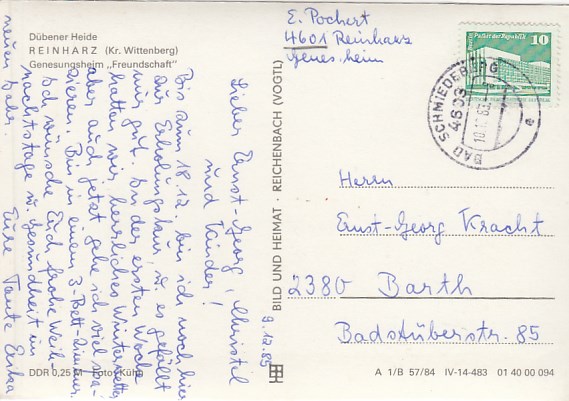 Dübener Heide
REINHARZ (Kr. Wittenberg)
Genesungsheim „Freundschaft"
E. Pochert
4601 Reinharz
Genesheim
Palast der Republik
10
BAD SCHMIEDEBERG
4603
a
9.12.85
Lieber Ernst-Georg, Christel
und Kinder!
Bis zum 18.12. bin ich noch hier
zur Erholungskur, u. es gefällt
mir gut. In der ersten Woche
hatten wir herrliches Winterwetter,
aber auch jetzt gehe ich viel spa-
zieren. Bin in einem 3-Bett-Zimmer.
Ich wünsche Euch frohe Weih-
nachtstage u. Gesundheit im
neuen Jahr. Eure Tante Erika
BILD UND HEIMAT · REICHENBACH (VOGTL)
Herrn
Ernst-Georg Kracht
2380 Barth
Badstüberstr. 85
DDR 0,25 M Foto: Kühn
A 1/B 57/84 IV-14-483 01 40 00 094